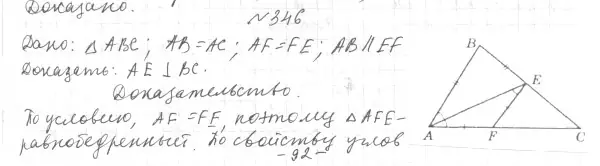 Доказано.
№346
Дано: △ABC; AB=AC; AF=FE; AB∥EF
Доказать: AE⊥BC.
Доказательство.
По условию, AF=FE, поэтому △AFE-
равнобедренный. По свойству углов
-92-
B
E
A
F
C